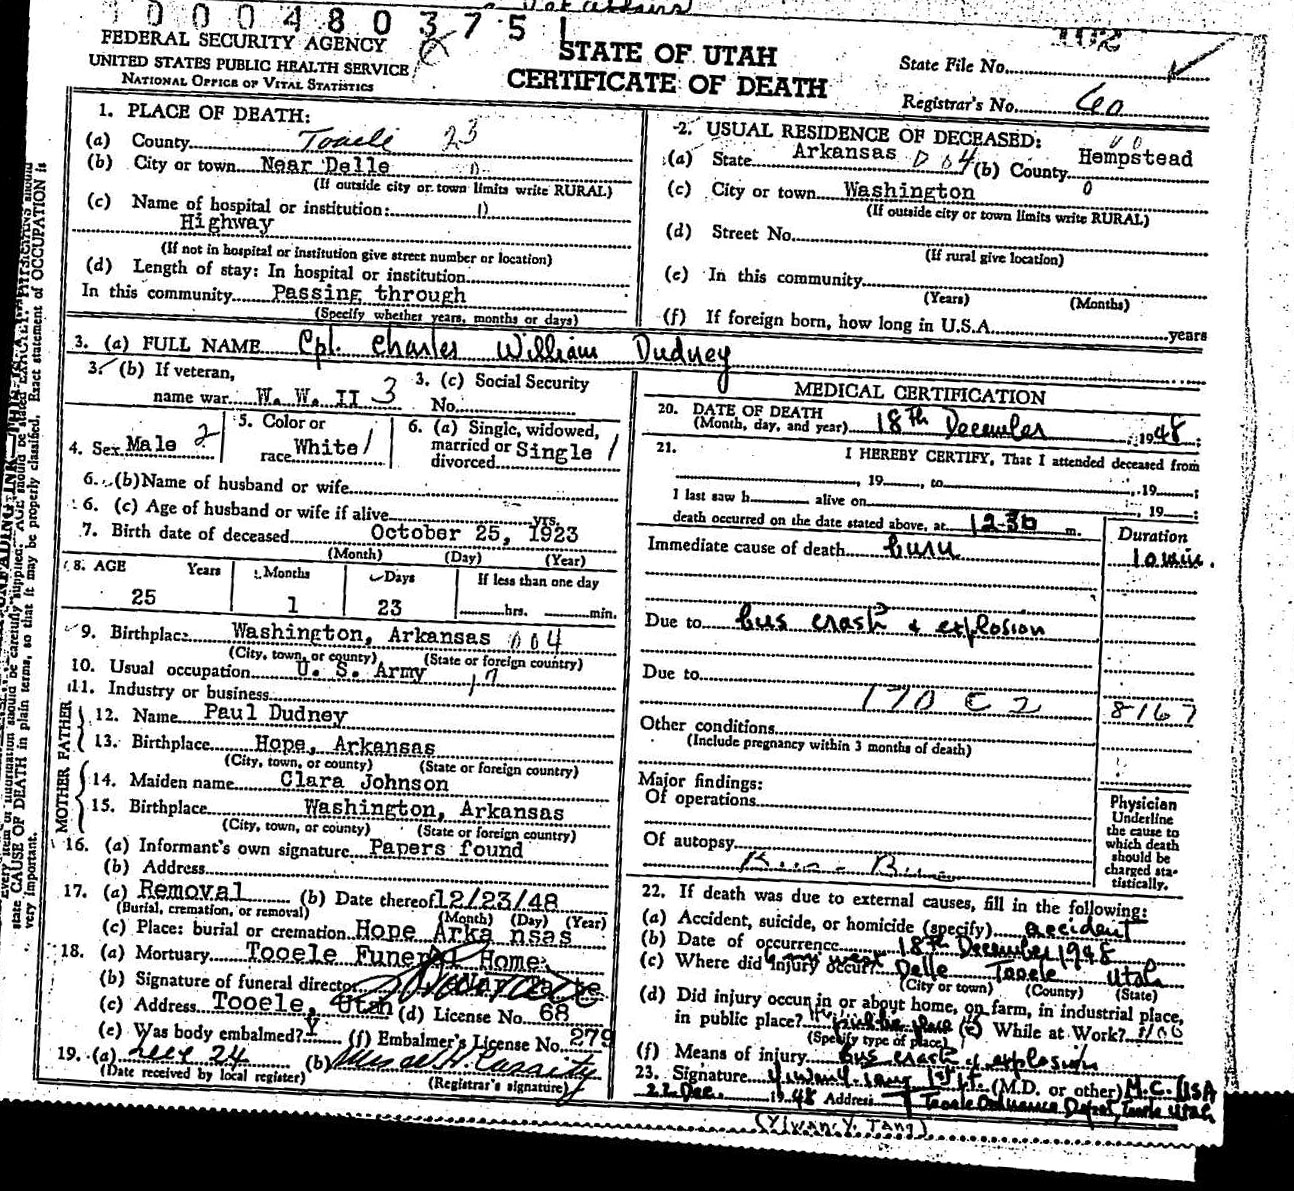 1000480375 1
FEDERAL SECURITY AGENCY
UNITED STATES PUBLIC HEALTH SERVICE
NATIONAL OFFICE OF VITAL STATISTICS
STATE OF UTAH
CERTIFICATE OF DEATH
State File No.
Registrar's No. 60
1. PLACE OF DEATH:
(a) County Tooele 23
(b) City or town Near Delle 0
(If outside city or town limits write RURAL)
(c) Name of hospital or institution: 0
Highway
(If not in hospital or institution give street number or location)
(d) Length of stay: In hospital or institution
In this community Passing through
(Specify whether years, months or days)
2. USUAL RESIDENCE OF DECEASED:
(a) State Arkansas 004 (b) County Hempstead
(c) City or town Washington 0
(If outside city or town limits write RURAL)
(d) Street No.
(If rural give location)
(e) In this community
(Years) (Months)
(f) If foreign born, how long in U.S.A. years
3. (a) FULL NAME Cpl. Charles William Dudney
3. (b) If veteran,
name war W. W. II 3
3. (c) Social Security
No.
4. Sex Male 2
5. Color or
race White 1
6. (a) Single, widowed,
married or
divorced Single 1
6. (b) Name of husband or wife
6. (c) Age of husband or wife if alive yrs.
7. Birth date of deceased October 25, 1923
(Month) (Day) (Year)
8. AGE Years Months Days If less than one day
25 1 23 hrs. min.
9. Birthplace Washington, Arkansas 004
(City, town, or county) (State or foreign country)
10. Usual occupation U. S. Army
11. Industry or business
FATHER
12. Name Paul Dudney
13. Birthplace Hope, Arkansas
(City, town, or county) (State or foreign country)
MOTHER
14. Maiden name Clara Johnson
15. Birthplace Washington, Arkansas
(City, town, or county) (State or foreign country)
16. (a) Informant's own signature Papers found
(b) Address
17. (a) Removal (b) Date thereof 12/23/48
(Burial, cremation, or removal) (Month) (Day) (Year)
(c) Place: burial or cremation Hope Arka nsas
18. (a) Mortuary Tooele Funeral Home
(b) Signature of funeral director
(c) Address Tooele, Utah (d) License No. 68
(e) Was body embalmed? Y (f) Embalmer's License No. 279
19. (a) Dec 24 (b)
(Date received by local register) (Registrar's signature)
MEDICAL CERTIFICATION
20. DATE OF DEATH
(Month, day, and year) 18th December, 1948;
21. I HEREBY CERTIFY, That I attended deceased from
, 19 , to , 19 ;
I last saw h alive on , 19 ;
death occurred on the date stated above, at 1230 m.
Duration
Immediate cause of death burn 10 min.
Due to bus crash & explosion
Due to
170 C 2 8167
Other conditions
(Include pregnancy within 3 months of death)
Major findings:
Of operations
Of autopsy
Physician
Underline
the cause to
which death
should be
charged sta-
tistically.
22. If death was due to external causes, fill in the following:
(a) Accident, suicide, or homicide (specify) accident
(b) Date of occurrence 18th December 1948
(c) Where did injury occur? Delle Tooele Utah
(City or town) (County) (State)
(d) Did injury occur in or about home, on farm, in industrial place,
in public place? public place (e) While at Work?
(Specify type of place)
(f) Means of injury bus crash & explosion
23. Signature Yiwan Y. Tang 1st Lt. (M.D. or other) M.C. USA
22 Dec. 1948 Address Tooele Ordnance Depot, Tooele Utah
(Yiwan Y. Tang)
state CAUSE OF DEATH in plain terms, so that it may be properly classified. Exact statement of OCCUPATION is
very important.